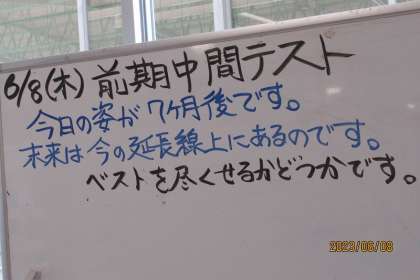 6/8(木)前期中間テスト
今日の姿が7ヶ月後です。
未来は今の延長線上にあるのです。
ベストを尽くせるかどうかです。
2023/06/08